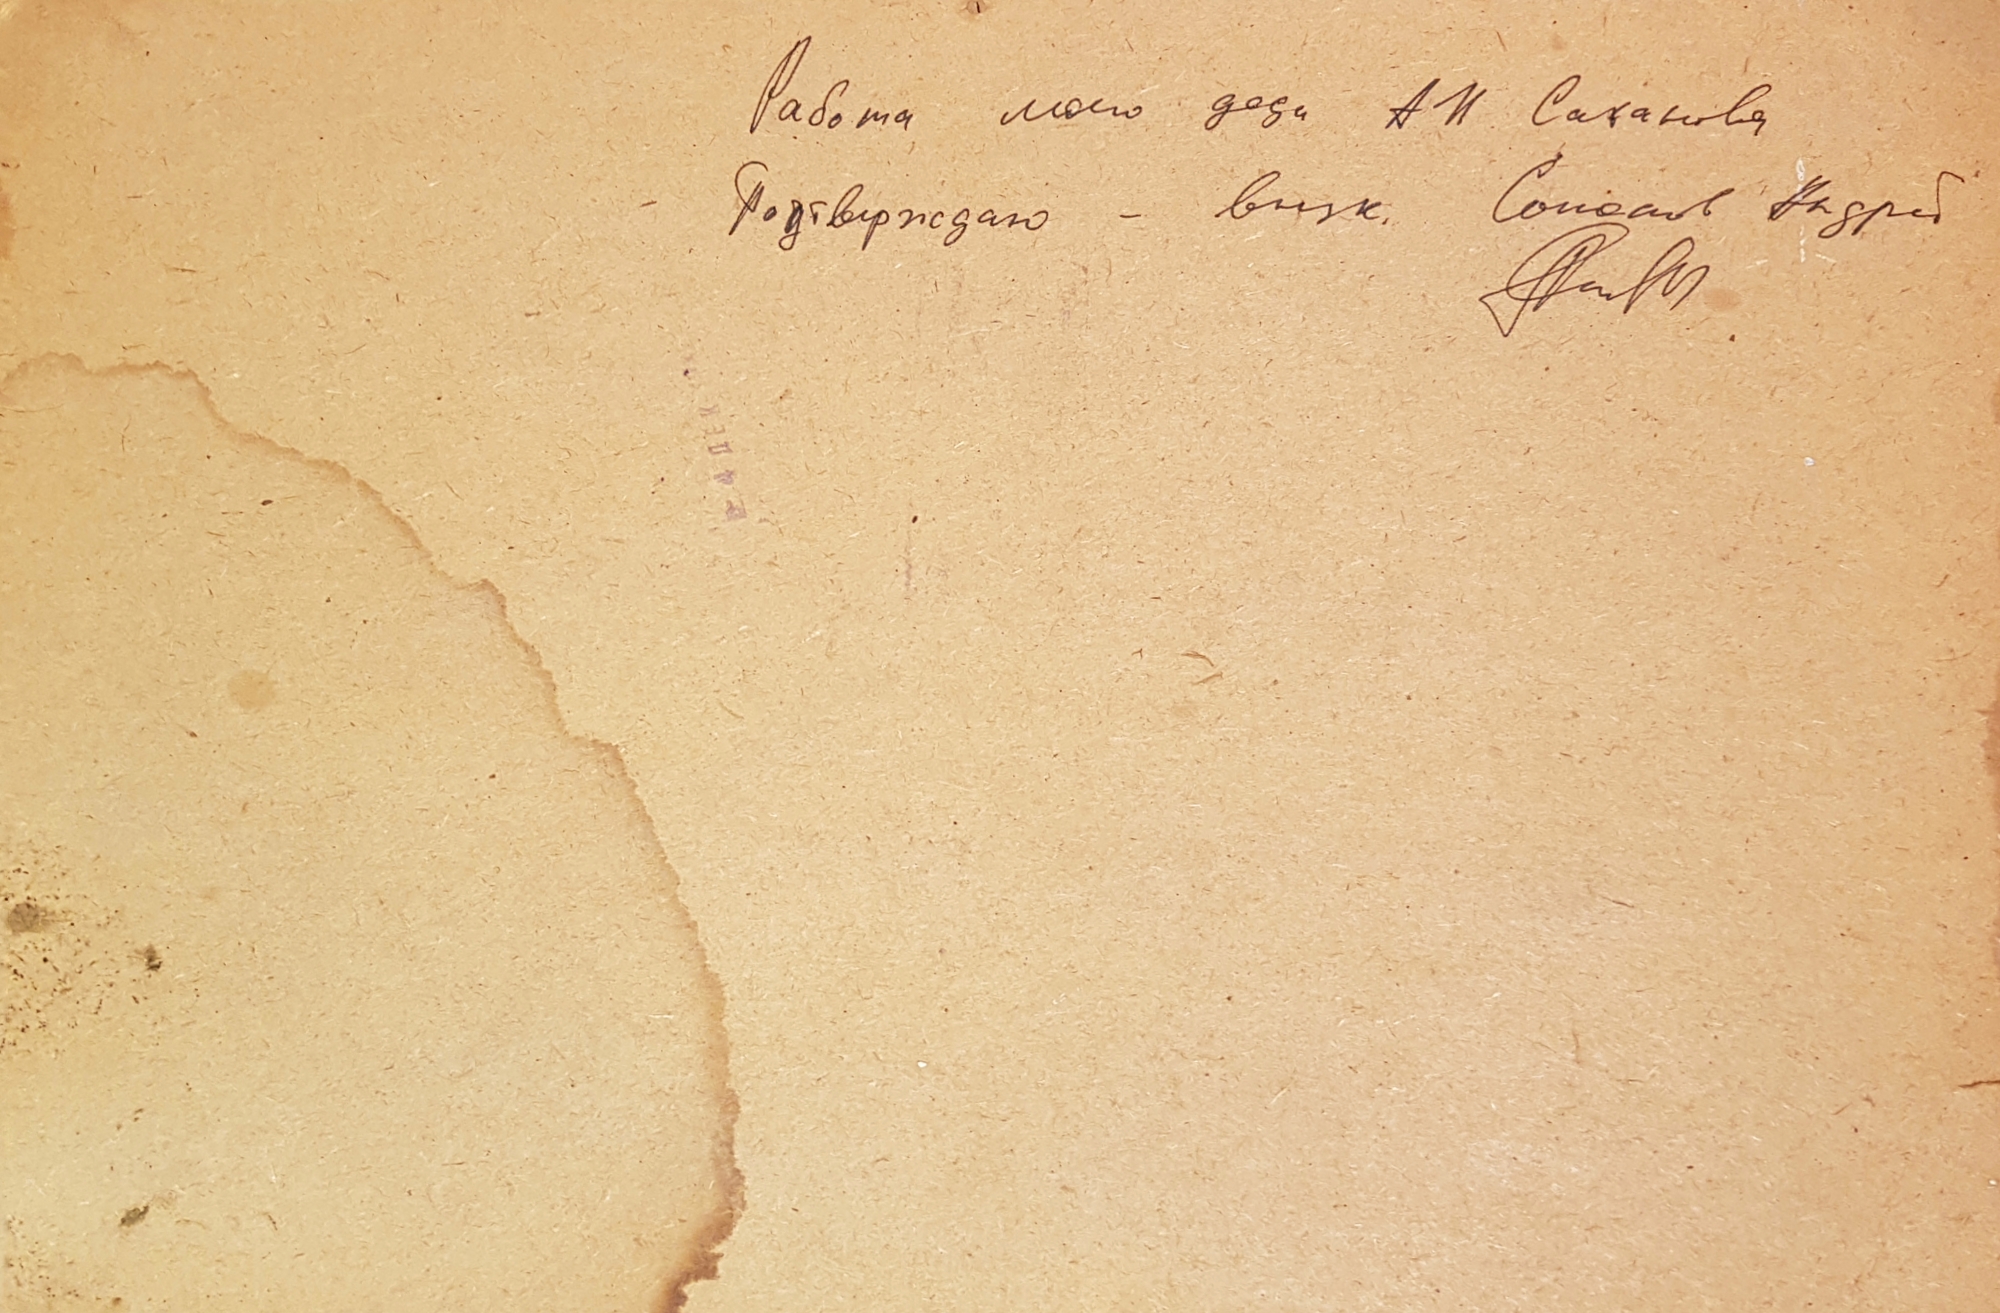 Работа моего деда АИ Саханова
- Подтверждаю - внук. Андрей